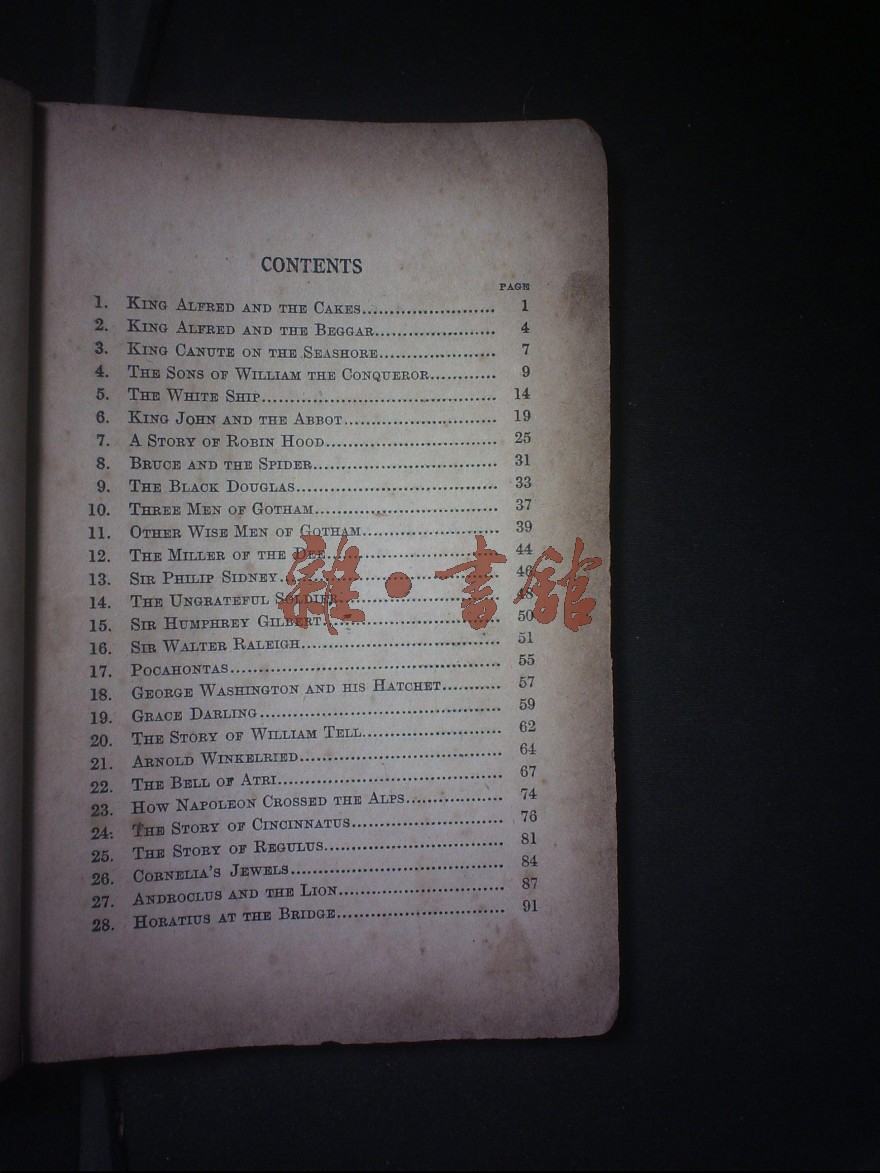 CONTENTS
PAGE
1. KING ALFRED AND THE CAKES........................ 1
2. KING ALFRED AND THE BEGGAR...................... 4
3. KING CANUTE ON THE SEASHORE..................... 7
4. THE SONS OF WILLIAM THE CONQUEROR............ 9
5. THE WHITE SHIP.......................................... 14
6. KING JOHN AND THE ABBOT............................ 19
7. A STORY OF ROBIN HOOD............................... 25
8. BRUCE AND THE SPIDER................................. 31
9. THE BLACK DOUGLAS.................................... 33
10. THREE MEN OF GOTHAM................................. 37
11. OTHER WISE MEN OF GOTHAM......................... 39
12. THE MILLER OF THE DEE............................... 44
13. SIR PHILIP SIDNEY........................................ 46
14. THE UNGRATEFUL SOLDIER............................. 48
15. SIR HUMPHREY GILBERT................................ 50
16. SIR WALTER RALEIGH.................................... 51
17. POCAHONTAS................................................ 55
18. GEORGE WASHINGTON AND HIS HATCHET........... 57
19. GRACE DARLING........................................... 59
20. THE STORY OF WILLIAM TELL......................... 62
21. ARNOLD WINKELRIED.................................... 64
22. THE BELL OF ATRI........................................ 67
23. HOW NAPOLEON CROSSED THE ALPS................. 74
24. THE STORY OF CINCINNATUS........................... 76
25. THE STORY OF REGULUS................................ 81
26. CORNELIA'S JEWELS...................................... 84
27. ANDROCLUS AND THE LION.............................. 87
28. HORATIUS AT THE BRIDGE............................... 91
雜·書館